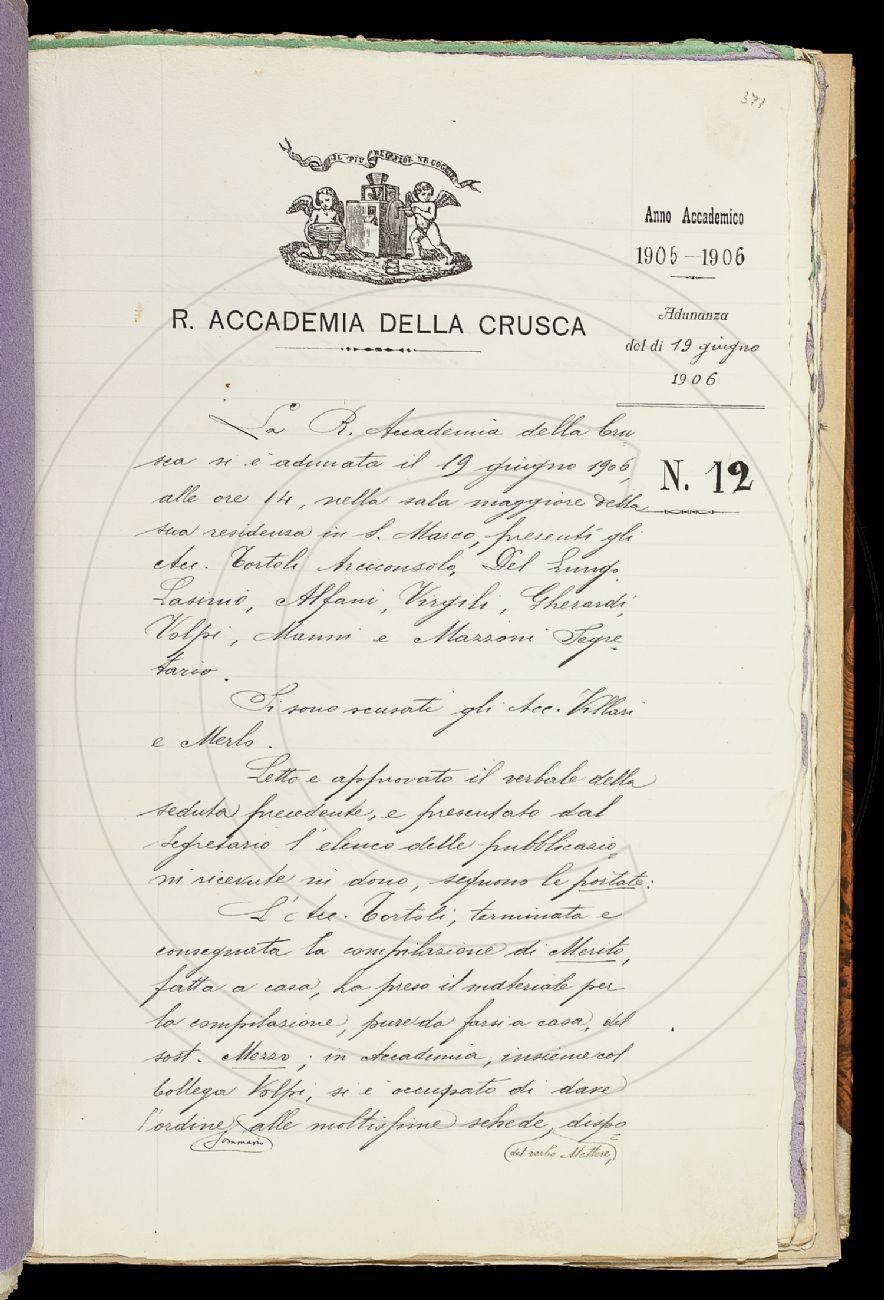 371
IL PIÙ BEL FIOR NE COGLIE
Anno Accademico
1905-1906
R. ACCADEMIA DELLA CRUSCA
Adunanza
del dì 19 giugno
1906
N. 12
La R. Accademia della Cru
sca si è adunata il 19 giugno 1906,
alle ore 14, nella sala maggiore della
sua residenza in S. Marco, presenti gli
Acc. Tortoli Arciconsolo, Del Lungo,
Lasinio, Alfani, Virgili, Gherardi,
Volpi, Manni e Mazzoni Segre-
tario.
Si sono scusati gli Acc. Villari
e Merlo.
Letto e approvato il verbale della
seduta precedente, e presentato dal
Segretario l'elenco delle pubblicazio
ni ricevute in dono, seguono le portate:
L'Acc. Tortoli, terminata e
consegnata la compilazione di Merito,
fatta a casa, ha preso il materiale per
la compilazione, pure da farsi a casa, del
sost. Mezzo; in Accademia, insieme col
Collega Volpi, si è occupato di dare
l'ordine alle moltissime schede, dispo
sommario
del verbo Mettere,